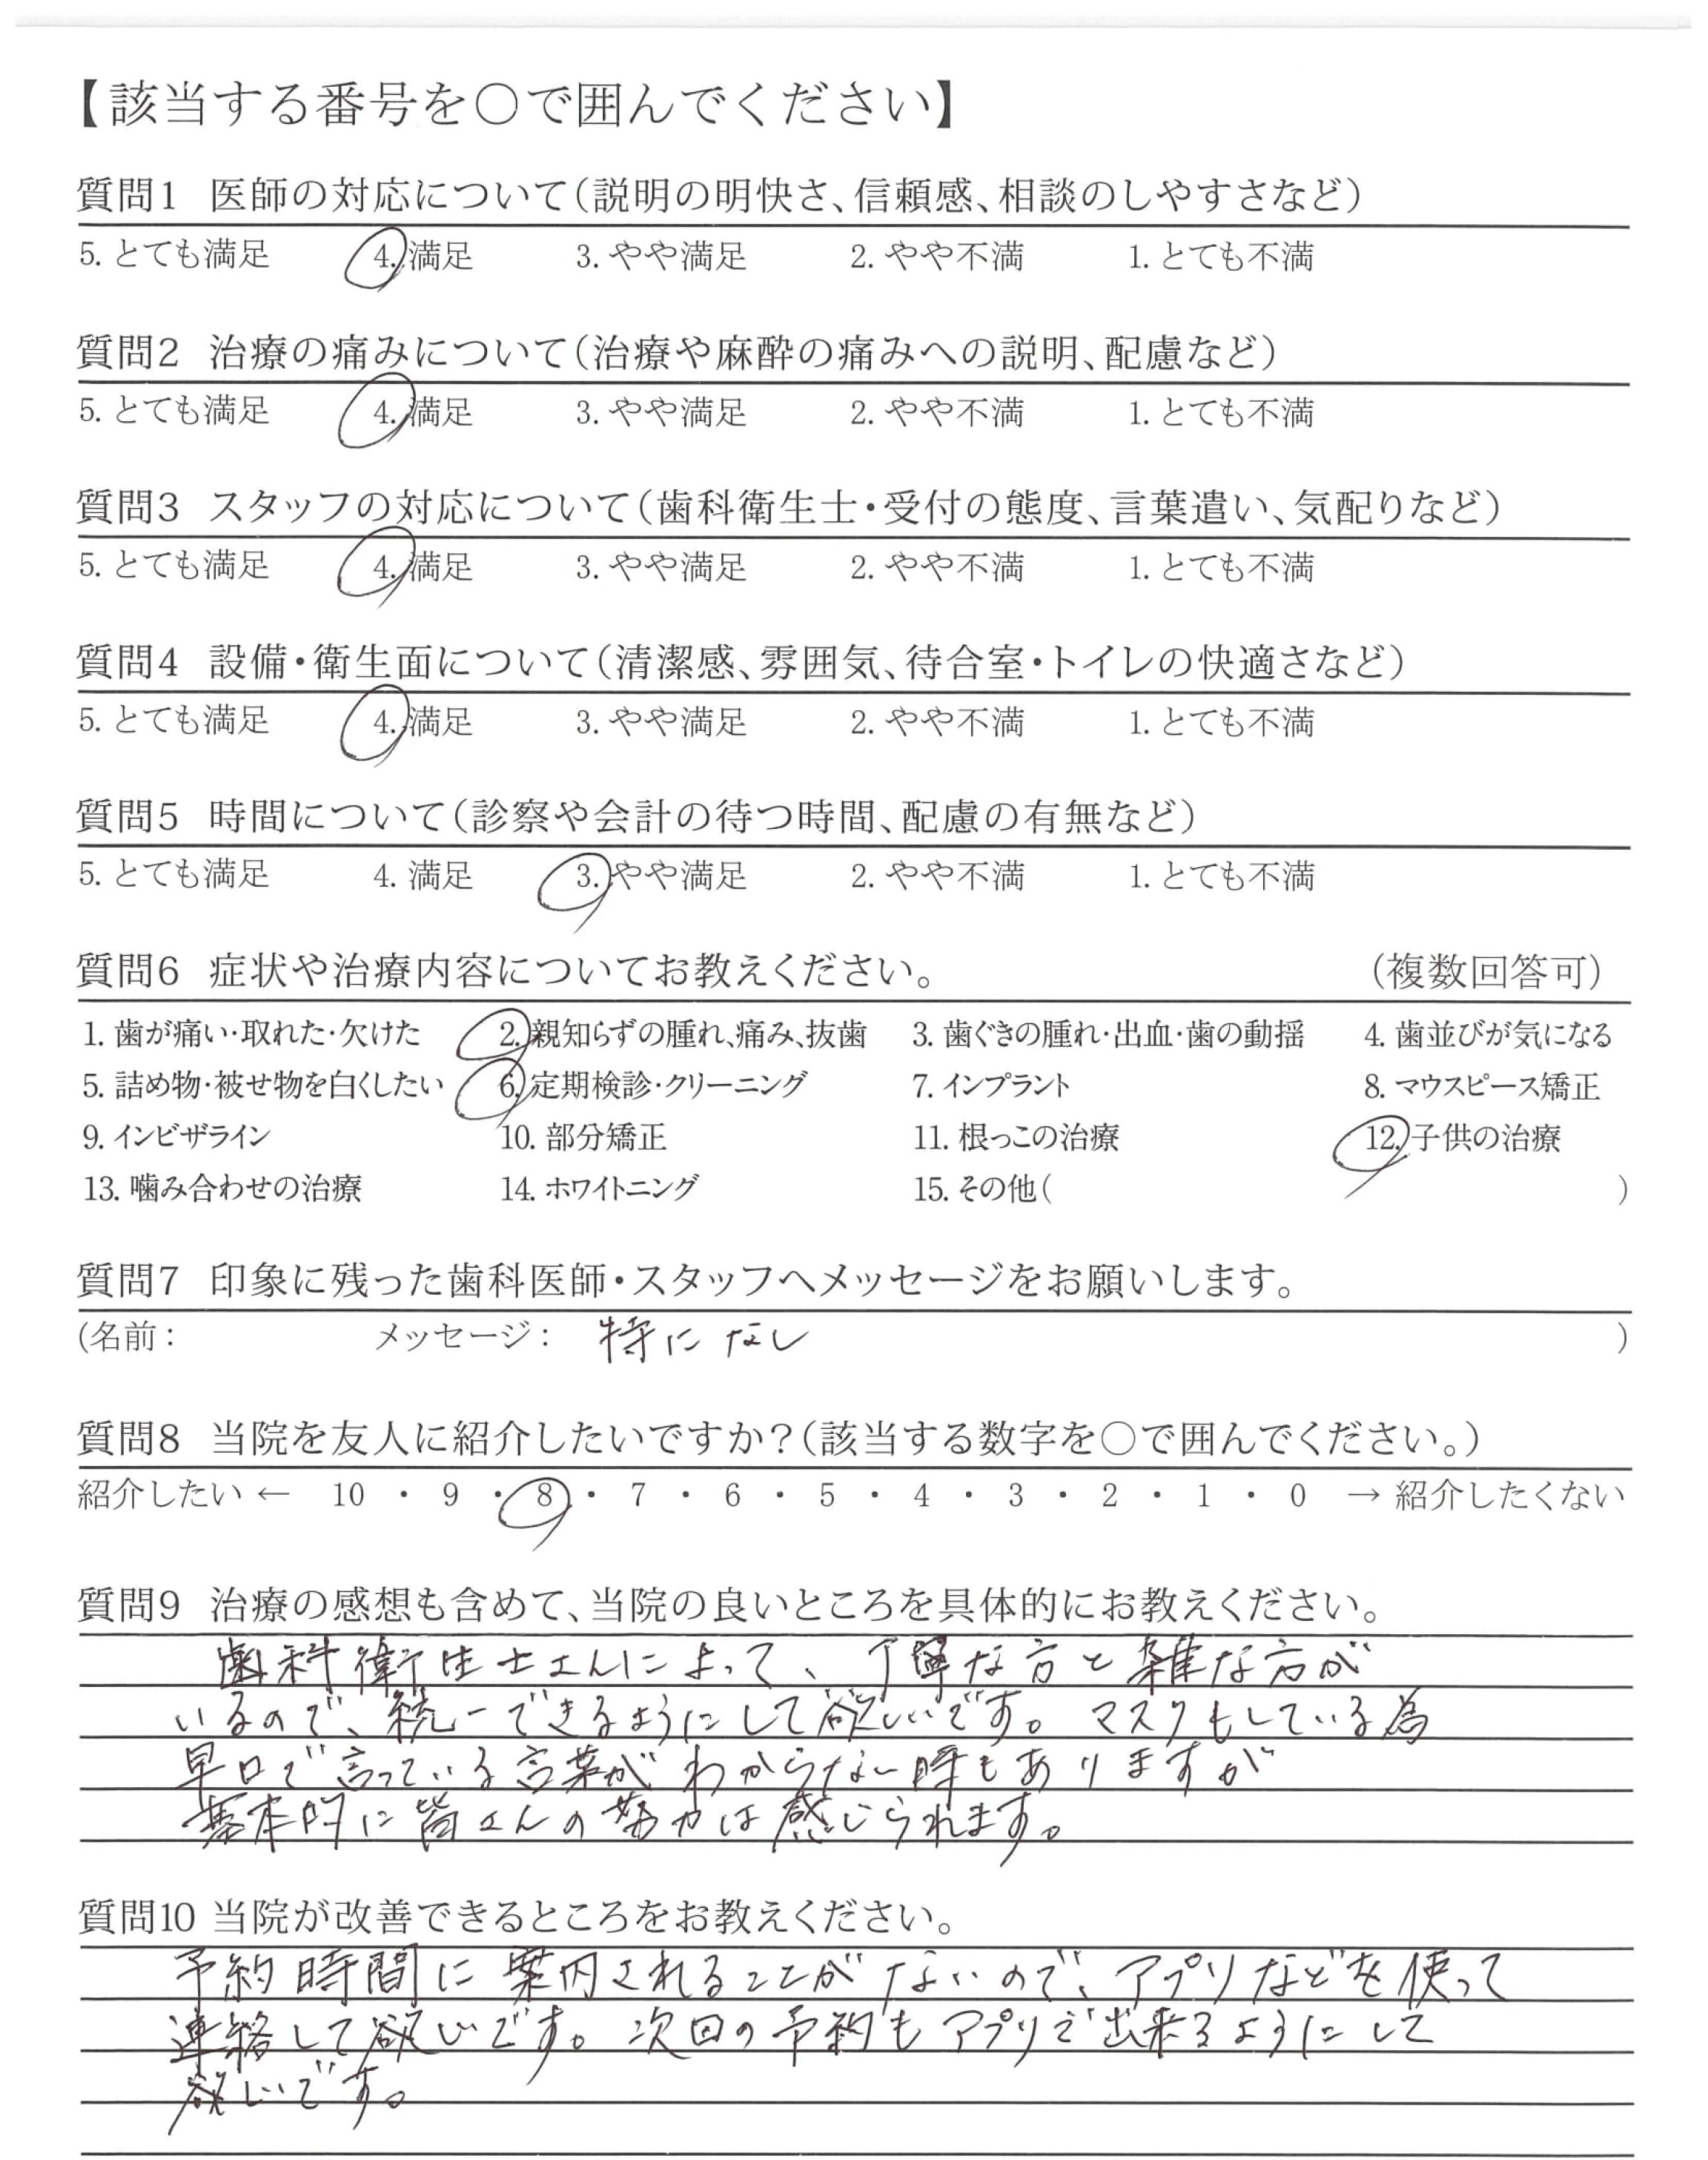 【該当する番号を○で囲んでください】
質問1 医師の対応について（説明の明快さ、信頼感、相談のしやすさなど）
5. とても満足 4. 満足 3. やや満足 2. やや不満 1. とても不満
質問2 治療の痛みについて（治療や麻酔の痛みへの説明、配慮など）
5. とても満足 4. 満足 3. やや満足 2. やや不満 1. とても不満
質問3 スタッフの対応について（歯科衛生士・受付の態度、言葉遣い、気配りなど）
5. とても満足 4. 満足 3. やや満足 2. やや不満 1. とても不満
質問4 設備・衛生面について（清潔感、雰囲気、待合室・トイレの快適さなど）
5. とても満足 4. 満足 3. やや満足 2. やや不満 1. とても不満
質問5 時間について（診察や会計の待つ時間、配慮の有無など）
5. とても満足 4. 満足 3. やや満足 2. やや不満 1. とても不満
質問6 症状や治療内容についてお教えください。 （複数回答可）
1. 歯が痛い・取れた・欠けた 2. 親知らずの腫れ、痛み、抜歯 3. 歯ぐきの腫れ・出血・歯の動揺 4. 歯並びが気になる
5. 詰め物・被せ物を白くしたい 6. 定期検診・クリーニング 7. インプラント 8. マウスピース矯正
9. インビザライン 10. 部分矯正 11. 根っこの治療 12. 子供の治療
13. 噛み合わせの治療 14. ホワイトニング 15. その他（ ）
質問7 印象に残った歯科医師・スタッフへメッセージをお願いします。
（名前： メッセージ： 特になし ）
質問8 当院を友人に紹介したいですか？（該当する数字を○で囲んでください。）
紹介したい ← 10 ・ 9 ・ 8 ・ 7 ・ 6 ・ 5 ・ 4 ・ 3 ・ 2 ・ 1 ・ 0 → 紹介したくない
質問9 治療の感想も含めて、当院の良いところを具体的にお教えください。
歯科衛生士さんによって、丁寧な方と雑な方が
いるので、統一できるようにして欲しいです。マスクもしている為
早口で言っている言葉がわからない時もありますが
基本的に皆さんの努力は感じられます。
質問10 当院が改善できるところをお教えください。
予約時間に案内されることがないので、アプリなどを使って
連絡して欲しいです。次回の予約もアプリで出来るようにして
欲しいです。